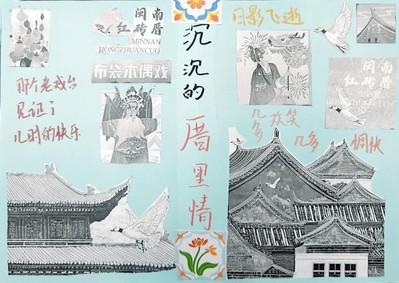 闽南
红砖厝
MINNAN
HONGZHUANCUO
布袋木偶戏
那个老戏台
见证了
儿时的快乐
沉沉的
厝里情
影飞逝
闽南
红砖厝
几多欢笑
几多惆怅